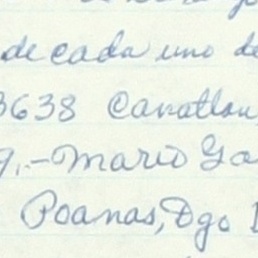 de cada uno de
3638 Canatlan,
9.- Mario Ga
Poanas, Dgo